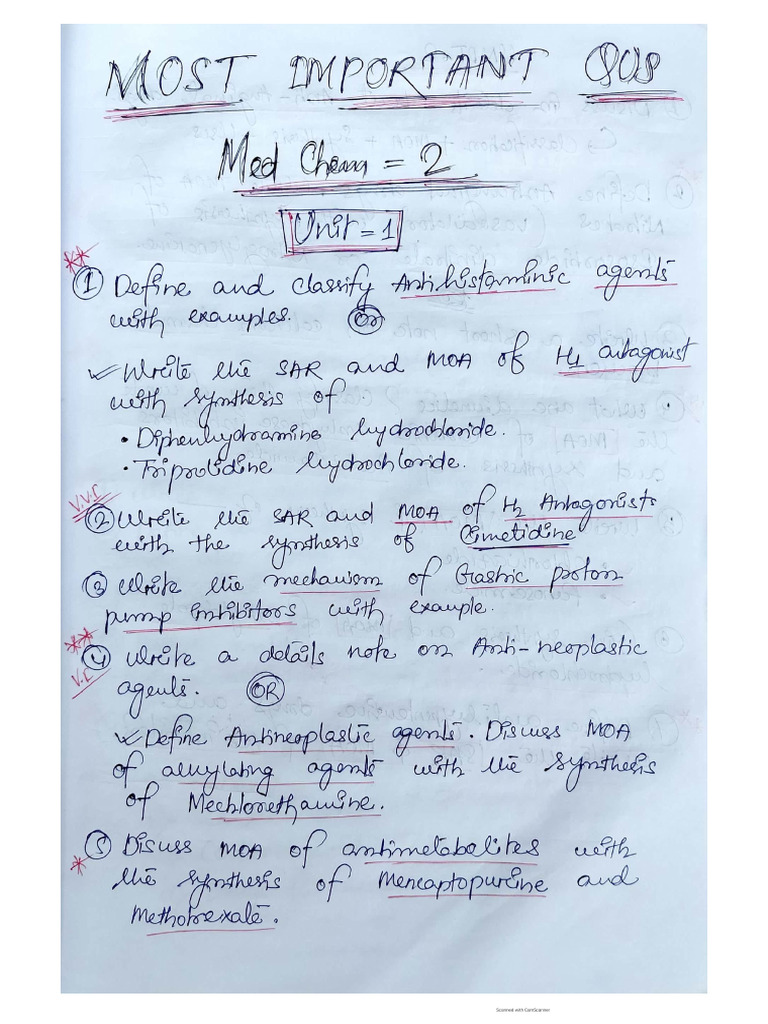 MOST IMPORTANT QUS
Med Chem = 2
Unit = 1
**
① Define and classify Antihistaminic agents
with examples. OR
✓ Write the SAR and MOA of H1 antagonist
with synthesis of
• Diphenhydramine hydrochloride.
• Triprolidine hydrochloride.
V.V.I
② Write the SAR and MOA of H2 Antagonists
with the synthesis of Cimetidine
③ Write the mechanism of Gastric proton
pump inhibitors with example.
**
④ Write a details note on Anti-neoplastic
V.I
agents. OR
✓ Define Antineoplastic agents. Discuss MOA
of alkylating agents with the synthesis
of Mechlorethamine.
⑤ Discuss MOA of antimetabolites with
*
the synthesis of Mercaptopurine and
Methotrexate.
Scanned with CamScanner